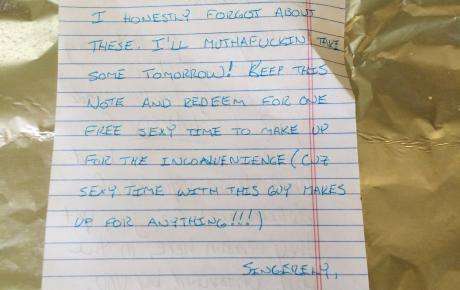 I HONESTLY FORGOT ABOUT
THESE. I'LL MUTHAFUCKIN TAKE
SOME TOMORROW! KEEP THIS
NOTE AND REDEEM FOR ONE
FREE SEXY TIME TO MAKE UP
FOR THE INCONVENIENCE (CUZ
SEXY TIME WITH THIS GUY MAKES
UP FOR ANYTHING!!!)
SINCERELY,